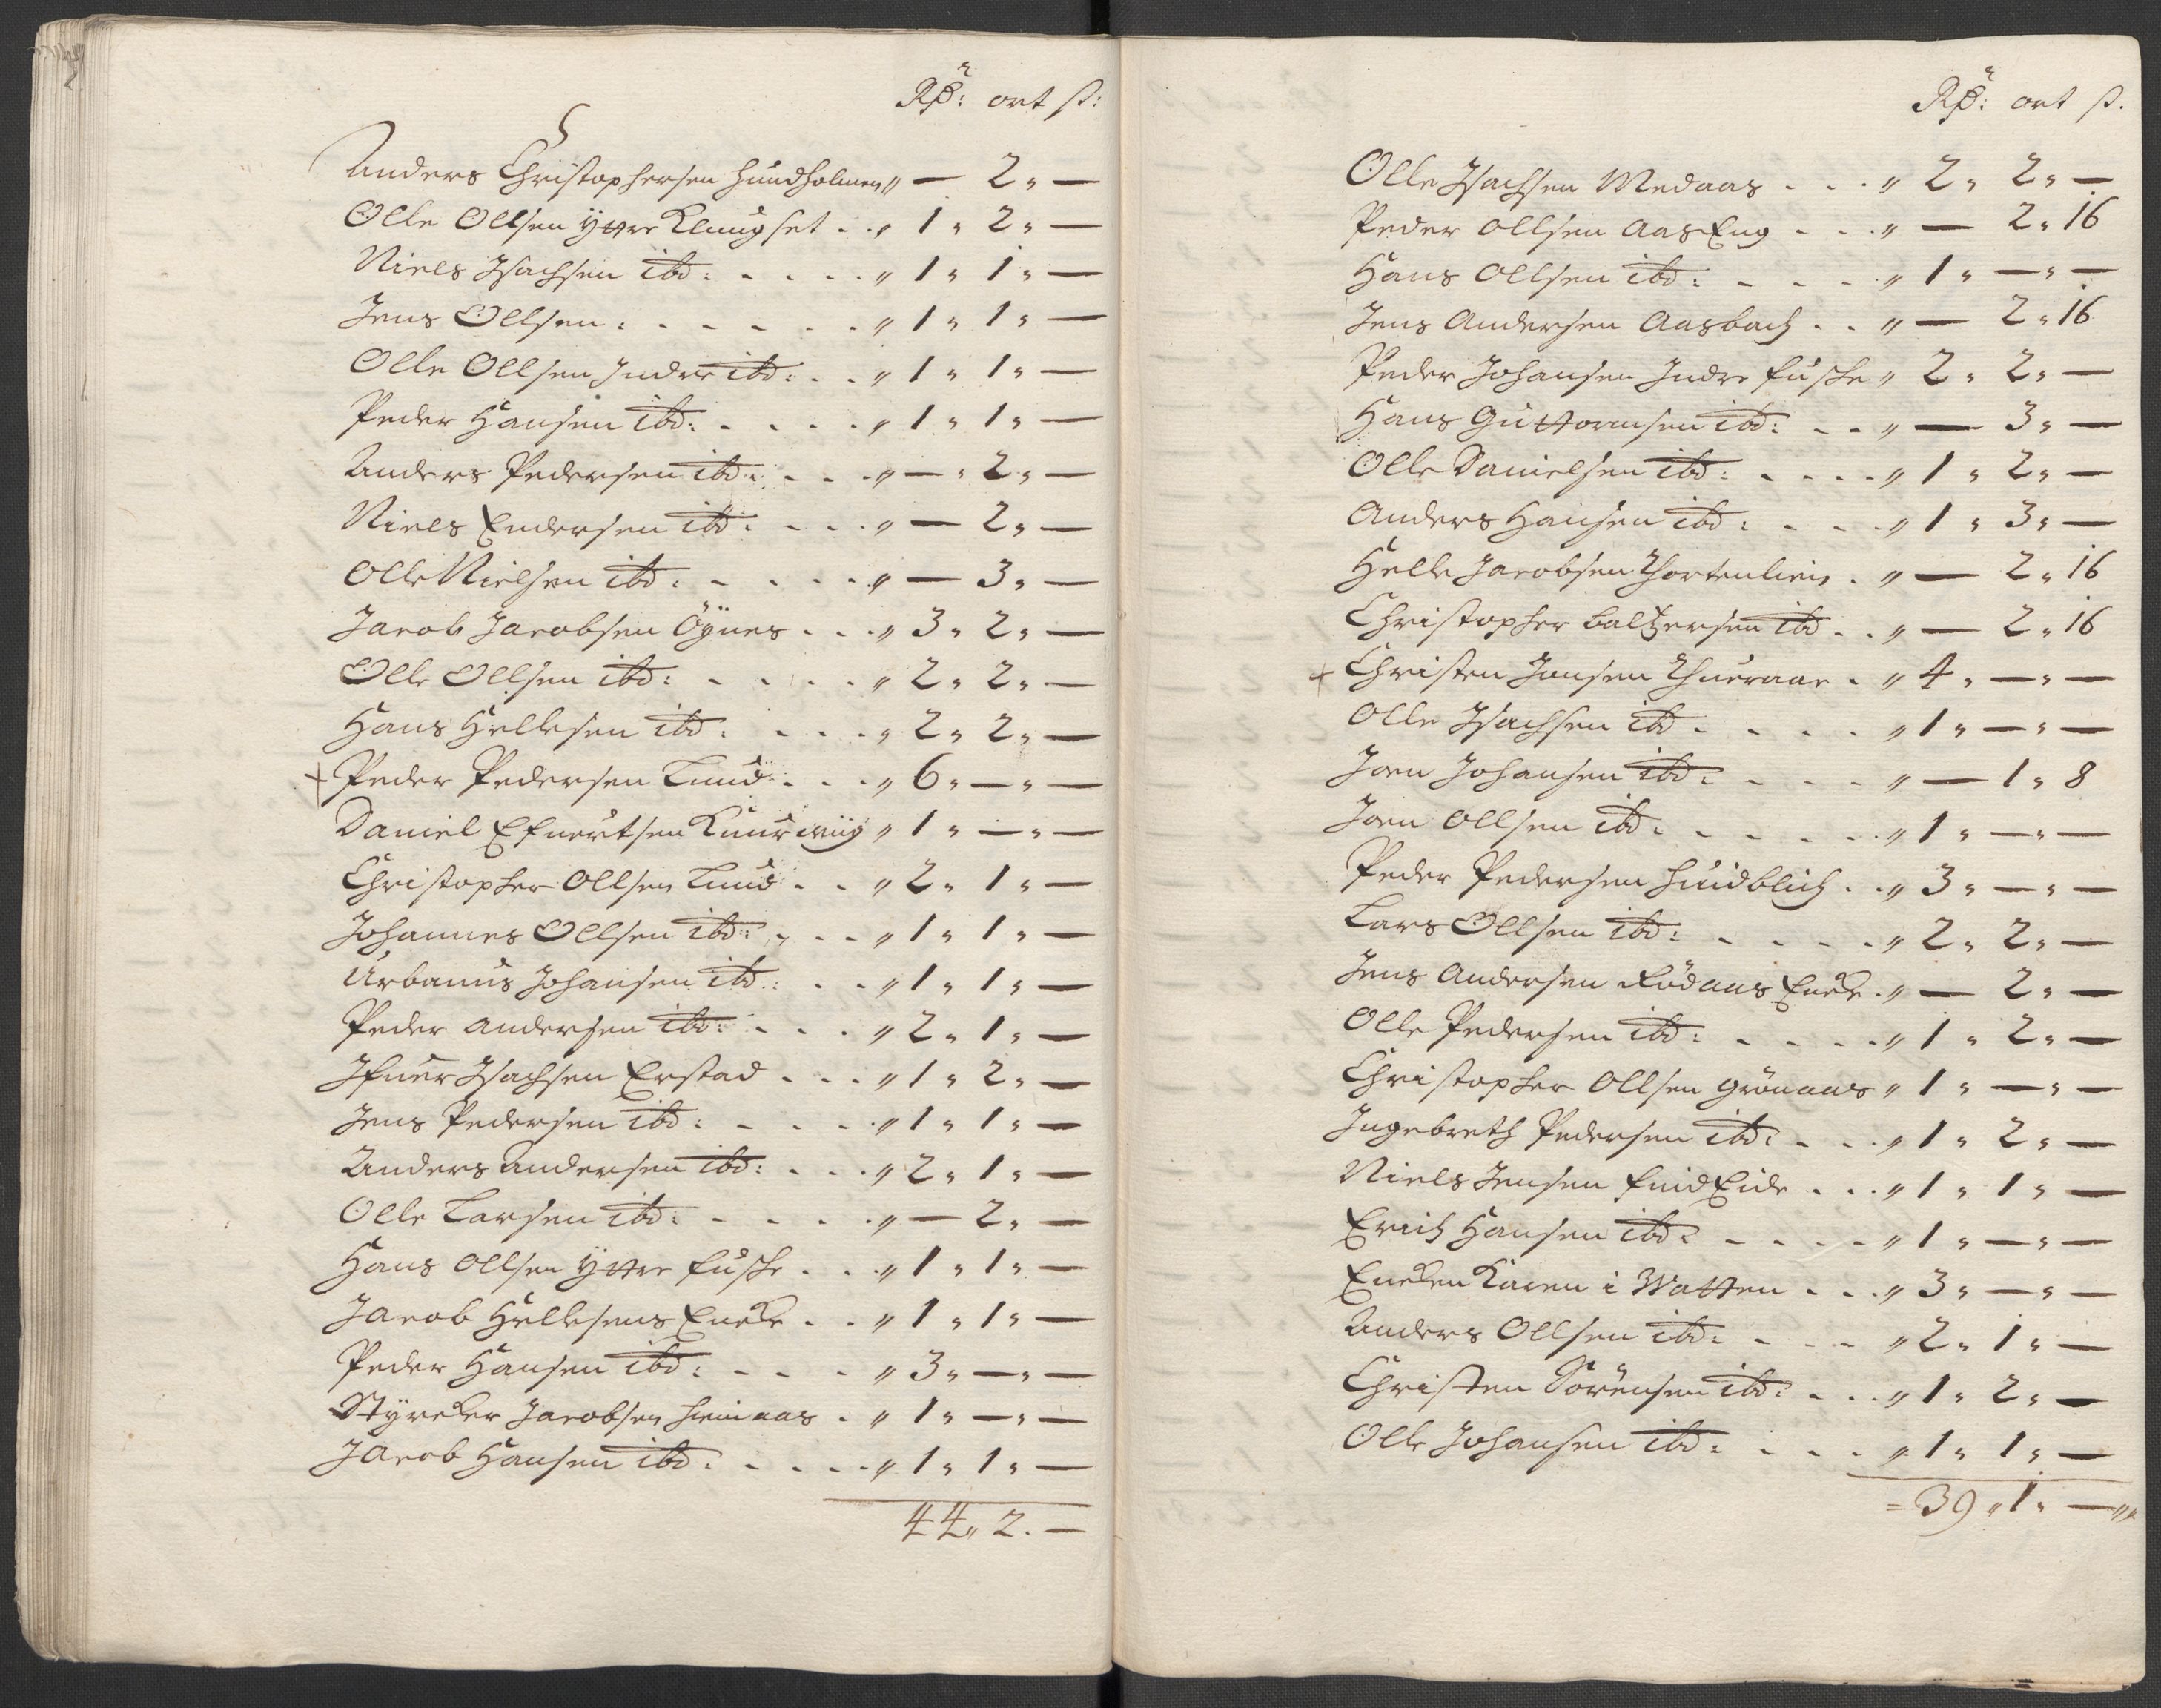 Rdr: ort s:
Anders Christophersen Hundholmen „ — 2 „ —
Olle Ollsen Yttre Klungset . . „ 1 „ 2 „ —
Niels Isachsen ibd: . . . . . „ 1 „ 1 „ —
Jens Ollsen: . . . . . . „ 1 „ 1 „ —
Olle Ollsen Indre ibd: . . „ 1 „ 1 „ —
Peder Hansen ibd: . . . . „ 1 „ 1 „ —
Anders Pedersen ibd: . . . „ — „ 2 „ —
Niels Endersen ibd: . . . „ — 2 „ —
Olle Nielsen ibd: . . . . . „ — 3 „ —
Jacob Jacobsen Öÿnes . . . „ 3 „ 2 „ —
Olle Ollsen ibd: . . . . „ 2 „ 2 „ —
Hans Hellesen ibd: . . . „ 2 „ 2 „ —
+ Peder Pedersen Lund . . . „ 6 „ — „ —
Daniel Efuertsen „ 1 „ — „ —
Christopher Ollsen Lund . . „ 2 „ 1 „ —
Johannes Ollsen ibd: . . . „ 1 „ 1 „ —
Urbanus Johansen ibd: . . „ 1 „ 1 „ —
Peder Andersen ibd: . . . „ 2 „ 1 „ —
Ifuer Isachsen Erstad . . . „ 1 „ 2 „ —
Jens Pedersen ibd: . . . . „ 1 „ 1 „ —
Anders Andersen ibd: . . . „ 2 „ 1 „ —
Olle Larsen ibd: . . . . . „ — 2 „ —
Hans Ollsen Yttre Fuske . . . „ 1 „ 1 „ —
Jacob Hellesens Encke . . „ 1 „ 1 „ —
Peder Hansen ibd: . . . „ 3 „ — „ —
Styrcker Jacobsen . „ 1 „ — „ —
Jacob Hansen ibd: . . . . . „ 1 „ 1 „ —
44 „ 2 . —
Rdr: ort s.
Olle Isachsen Medaas . . . „ 2 „ 2 „ —
Peder Ollsen Aas Eng . . . „ — 2 „ 16
Hans Ollsen ibd: . . . . „ 1 „ — „ —
Jens Andersen Aasbach . . „ — 2 „ 16
Peder Johansen Indre Fuske „ 2 „ 2 „ —
Hans Guttormsen ibd: . . „ — 3 „ —
Olle Danielsen ibd: . . . . „ 1 „ 2 „ —
Anders Hansen ibd: . . . . „ 1 „ 3 „ —
Helle Jacobsen . „ — 2 „ 16
Christopher Baltzersen ibd . . „ — 2 „ 16
+ Christen Jensen . „ 4 „ — „ —
Olle Isachsen ibd . . . . „ 1 „ — „ —
Joen Johansen ibd: . . . . „ — 1 „ 8
Joen Ollsen ibd: . . . . . „ 1 „ — „ —
Peder Pedersen Huidblich . . „ 3 „ — „ —
Lars Ollsen ibd: . . . . . „ 2 „ 2 „ —
Jens Andersen Rödaas Encke . „ — 2 „ —
Olle Pedersen ibd: . . . . . „ 1 „ 2 „ —
Christopher Ollsen Grönaas „ 1 „ — „ —
Ingebreth Pedersen ibd: . . . „ 1 „ 2 „ —
Niels Jensen Findeide . . . „ 1 „ 1 „ —
Erich Hansen ibd: . . . . . „ 1 „ — „ —
Encken Karen i Watten . . . „ 3 „ — „ —
Anders Ollsen ibd: . . . „ 2 „ 1 „ —
Christen Sörensen ibd: . . . „ 1 „ 2 „ —
Olle Johansen ibd: . . . . „ 1 „ 1 „ —
= 39 „ 1 „ — „